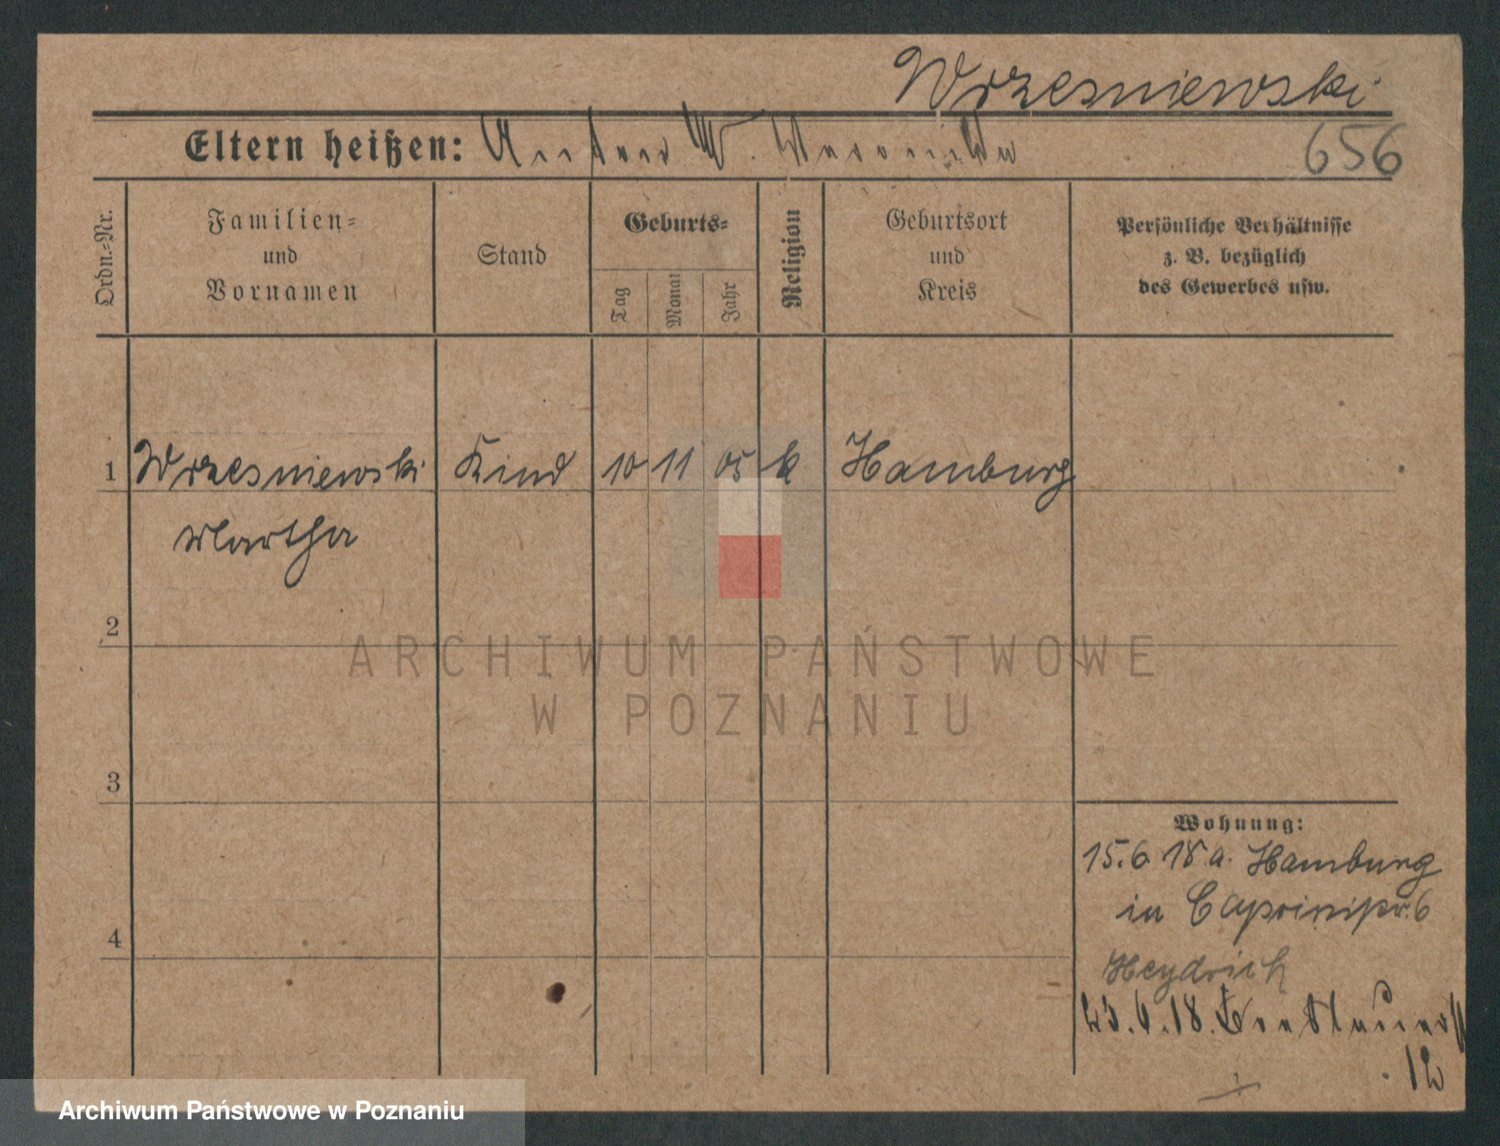 Wrzesniewski
Eltern heißen: Anton W. Veronika
656
Ordn.-Nr.
Familien-
und
Vornamen
Stand
Geburts-
Tag
Monat
Jahr
Religion
Geburtsort
und
Kreis
Persönliche Verhältnisse
z. B. bezüglich
des Gewerbes usw.
1 Wrzesniewski Kind 10 11 05 k Hamburg
Martha
2
ARCHIWUM PAŃSTWOWE
W POZNANIU
3
Wohnung:
15.6 18 a. Hamburg
in Caprivistr. 6
4
Heydrich
23.6.18.
12
Archiwum Państwowe w Poznaniu